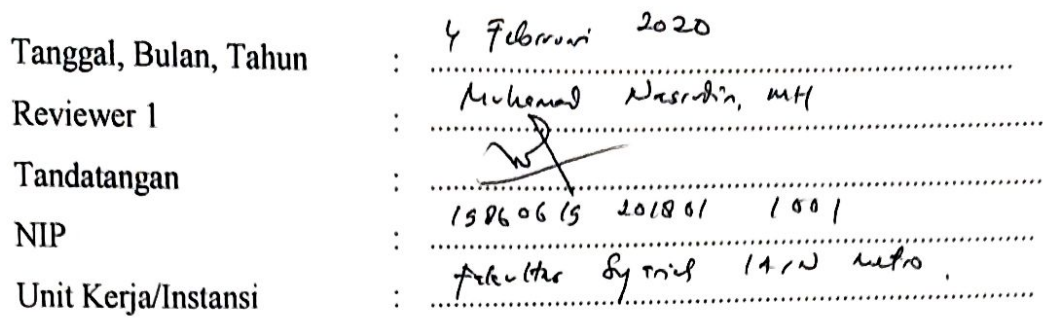 Tanggal, Bulan, Tahun : 4 Februari 2020
Reviewer 1 : Muhamad Nasrudin, MH
Tandatangan :
NIP : 19860619 201801 1 001
Unit Kerja/Instansi : Fakultas Syariah IAIN Metro.